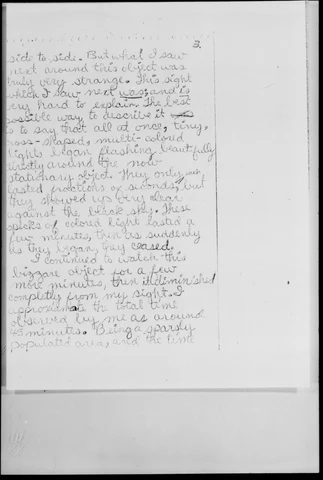 2
side to side. But what I saw
next around this object was
truly very strange. This sight
which I saw next was, and is
very hard to explain. The best
possible way to describe it
is to say that all at once, tiny,
cross-shaped, multi-colored
lights began flashing beautifully
directly around the now
stationary object. They only
lasted fractions of seconds, but
they showed up very clear
against the black sky. These
specks of colored light lasted a
few minutes, then as suddenly
as they began, they ceased.
I continued to watch this
bizzare object for a few
more minutes, then it diminished
completely from my sight. I
approximate the total time
observed by me as around
45 minutes. Being a sparsly
populated area, and the time